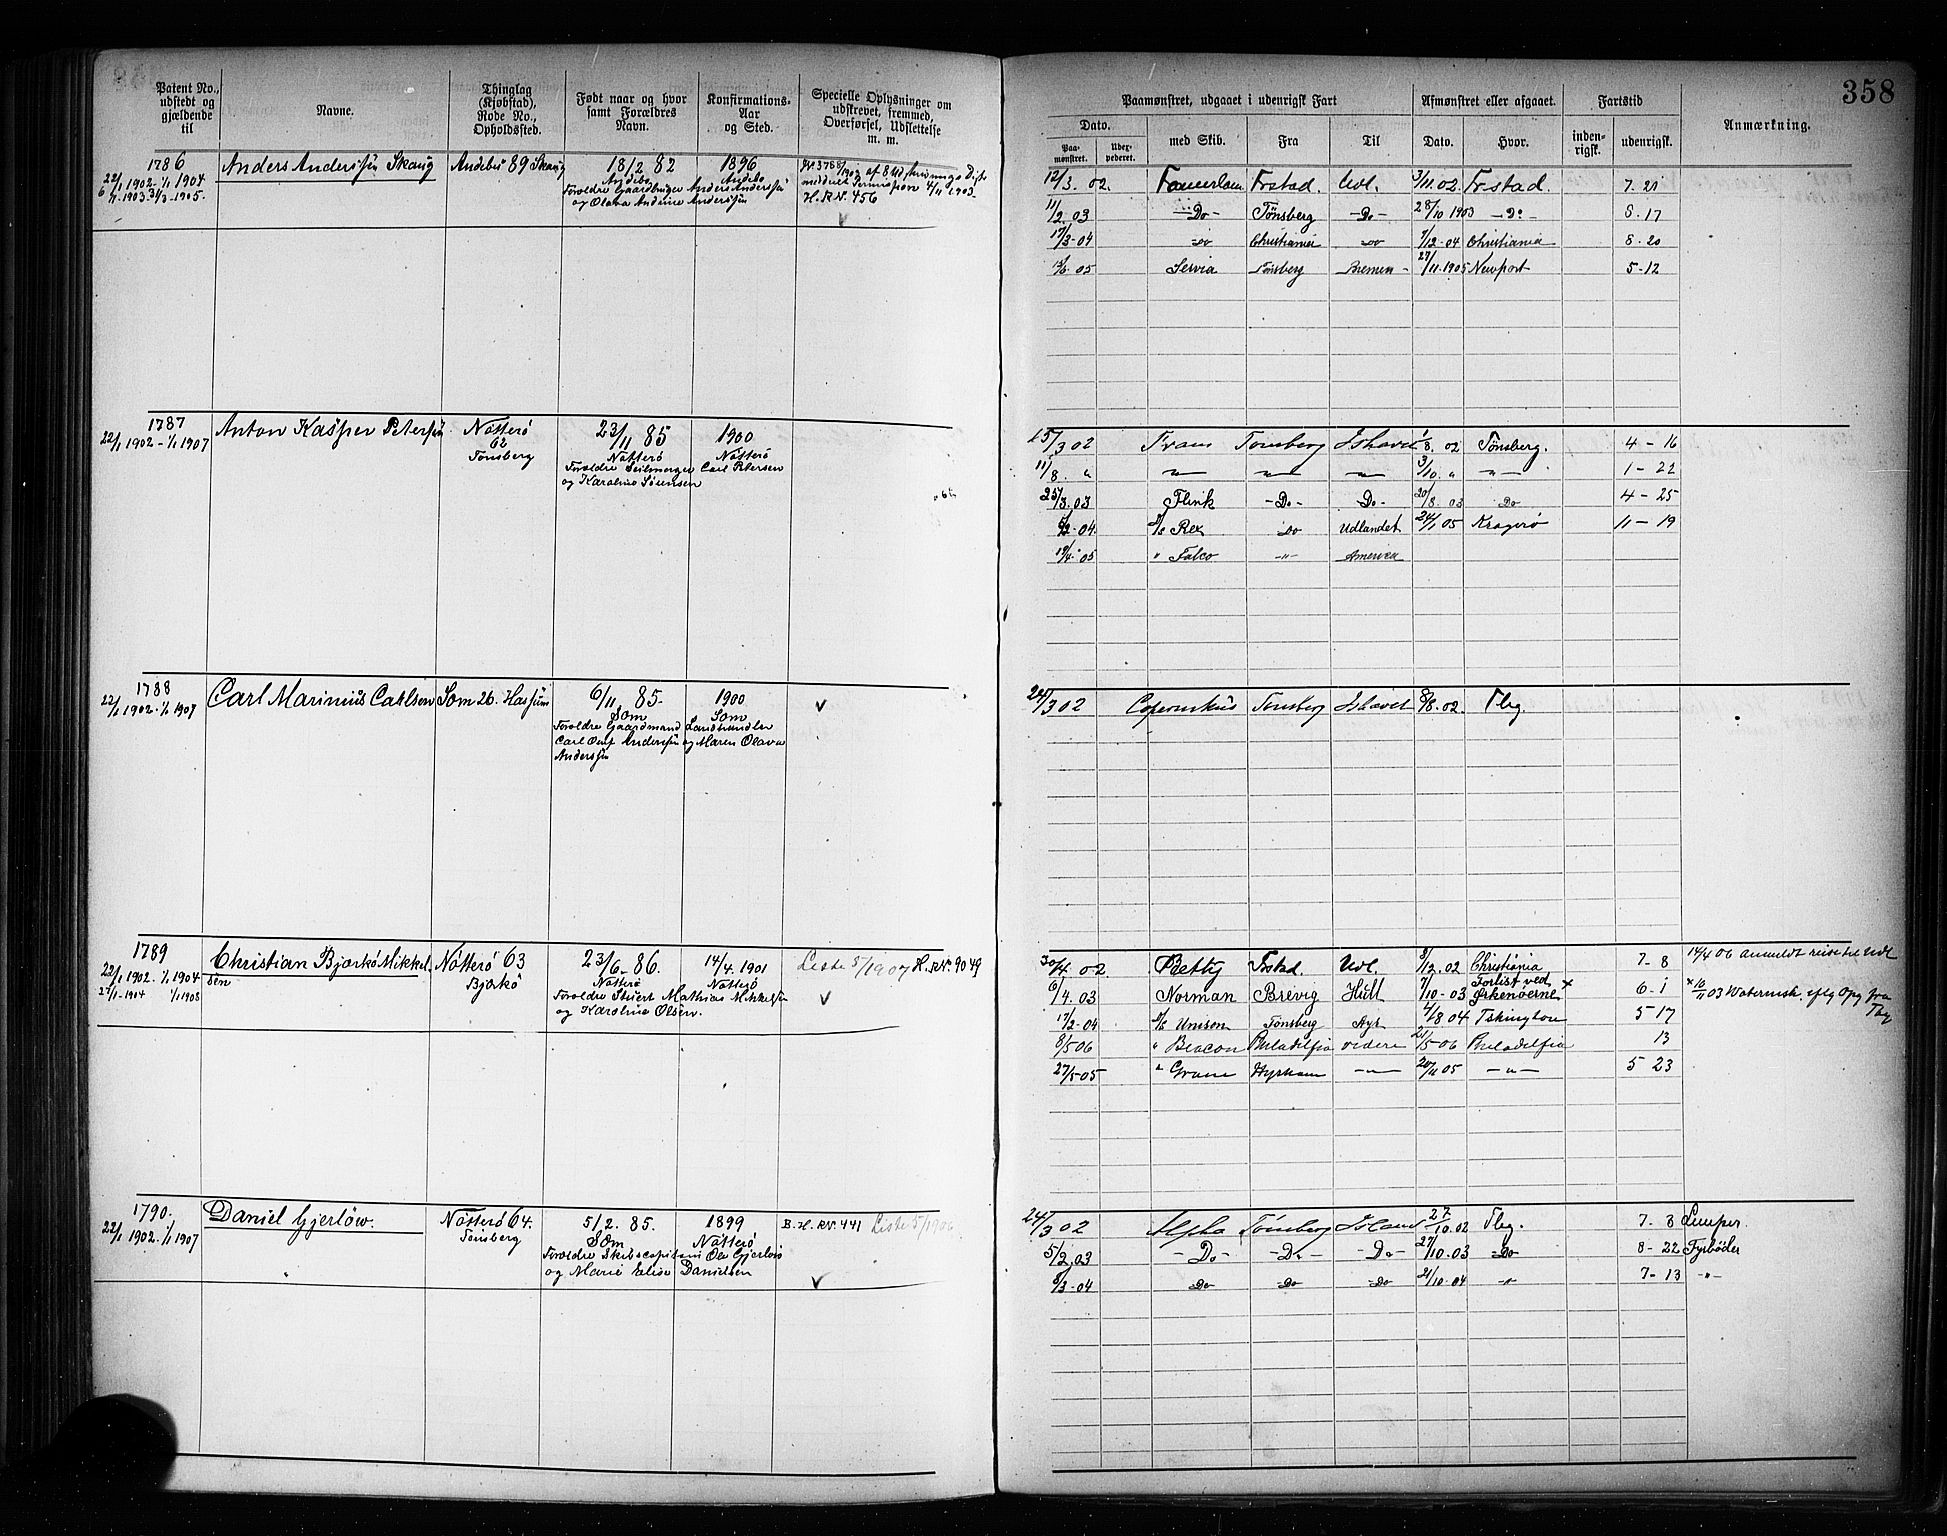 358
Patent No.,
udstedt og
gjældende
til
Navne.
Thinglag
(Kjøbstad),
Rode No.,
Opholdssted.
Født naar og hvor
samt Forældres
Navn.
Konfirmations-
Aar
og Sted.
Specielle Oplysninger om
udskrevet, fremmed,
Overførsel, Udslettelse
m. m.
Paamønstret, udgaaet i udenrigsk Fart
Afmønstret eller afgaaet.
Fartstid
Anmærkning.
Dato.
Paa-
mønstret.
Uder-
pederet.
med Skib.
Fra
Til
Dato.
Hvor.
inden-
rigsk.
udenrigsk.
1786
22/1 1902 - 1/1 1904
1903 31/3 1905.
Anders Anderssen Skaug
Andebu 89 Skaug
18/2 82
Andebu
Foreldre Gaardbruger Anders Anderssen
og Olava Andrine Anderssen
1896
Andebo
H. R.N. 456
12/3. 02. Fr.stad. Udl. 3/11. 02. Fr.stad. 7. 21
11/2. 03 -Do- Tønsberg -Do- 28/10 1903 -Do- 8. 17
17/3-04 -Do- Christiania -Do- 7/12-04 Christiania 8. 20
05 Servia Tønsberg Bremen - 27/11. 1905 Newport 5-12
1787
22/1 1902 - 1/1 1907
Anton Kasper Peterssen
Nøtterø
62
Tønsberg
23/11 85
Nøtterø
og Karoline Sørensen
1900
Nøtterø
Carl Petersen
15/3 02 Fram Tønsberg Ishavet 8. 02 Tønsberg. 4 - 16
11/8. " -"- -"- -"- 3/10. " -"- 1 - 22
25/3. 03 Flink -Do- Do- 20/8. 03 Do 4 - 25
2-04. S/S Rex Do Udlandet 24/1 05 Kragerø 11 - 19
19/4. 05 " Falco -"- America
1788
22/1 1902 - 1/1 1907
Carl Marinius Carlsen
Sem 26.
6/11 85.
Sem
Foreldre Gaardmand Landhandler
Carl Oluf Anderssen og Maren Olava
Anderssen
1900
Sem
24/3 02 Copernikus Tønsberg Ishavet 8/8. 02. Tbg.
1789
22/1 1902. 1/1 1904
27/1-1904 1/1 1908
Christian Bjerkø Mikkel-
sen
Nøtterø 63
Bjerkø
23/6- 86.
Nøtterø
Foreldre Stuert Mathias Mikkelsen
og Karoline Olsen.
14/4. 1901
Nøtterø
Liste 5/1907 H. RN. 9049
30/4. 02 Betty Fr.stad. Udl. 8/12. 02 Christiania 7- 8 14/4 06 anmeldt reise til Udl
6/4. 03 Norman Brevig Hull 7/10-03 Forlist ved
Orkenøerne × 6- 1 × 16/11 03
Tbg
17/2-04 S/S Unison Tønsberg 4/8 04 5 17
8/5 06 " Beacon Philadelfia videre 21/5-06 Philadelfia 13
27/5-05 " Grane 20/11 05 -"- 5 23
1790.
22/1 1902. 1/1 1907
Daniel Gjerløw.
Nøtterø 64.
Tønsberg
5/2. 85.
Sem
Foreldre Skibscaptein Ole Gjerløw
og Marie Elise Danielsen
1899
Nøtterø
B. H. RN. 441 Liste 5/1906
24/3 02 Alpha Tønsberg Island 27/10. 02 Tbg. 7- 8 Lemper.
5/2. 03 -Do- -Do- -Do- 27/10. 03 -Do- 8- 22 Fyrbøder
8/3-04 -Do- -Do- -Do- 21/10-04 -"- 7- 13 -"-